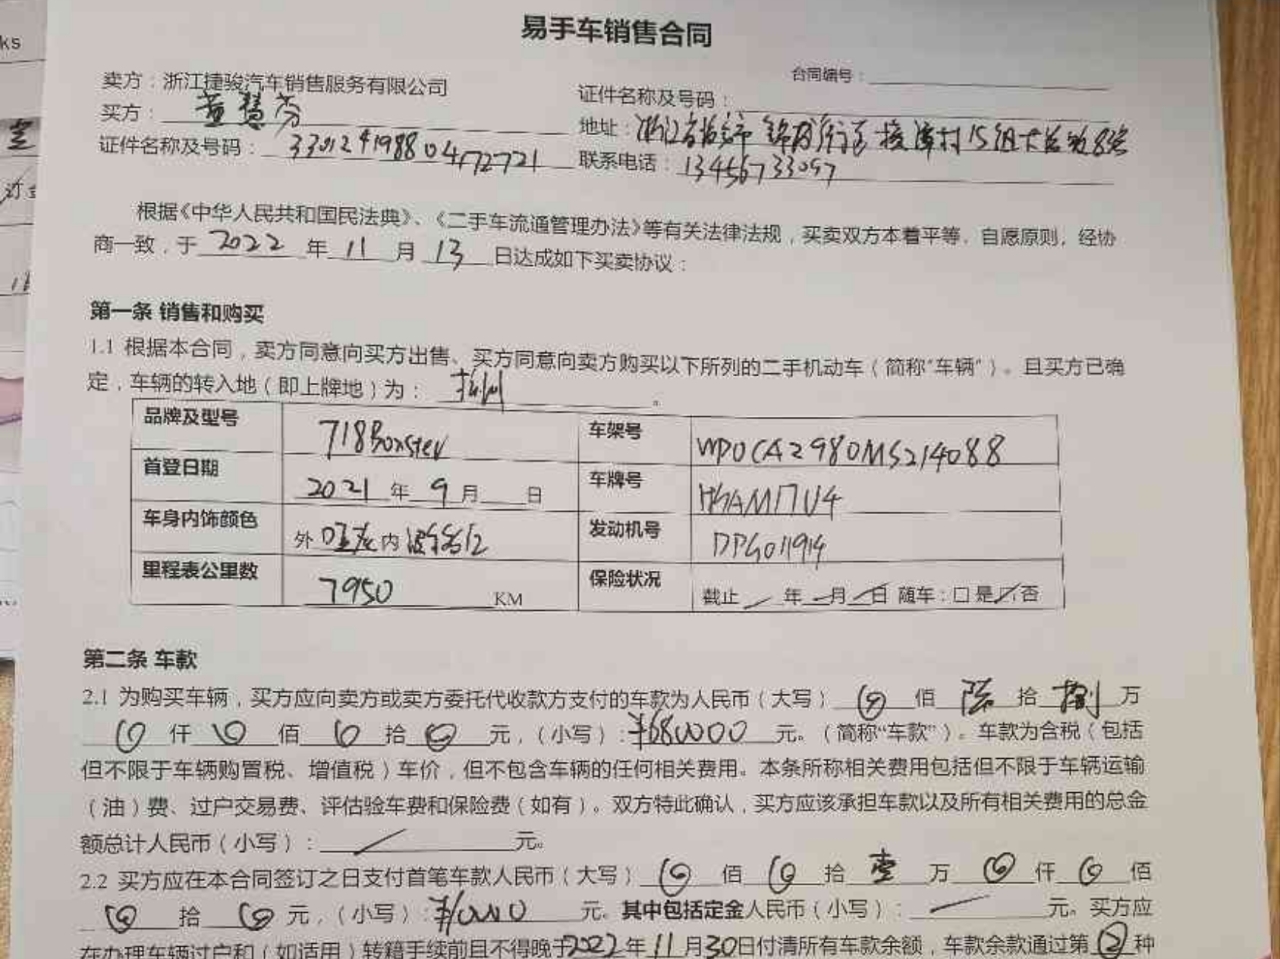 ks
易手车销售合同
合同编号：
卖方：浙江捷骏汽车销售服务有限公司
证件名称及号码：
买方：黄慧芬
地址：浙江省 市 锦 街道 村15组 8号
证件名称及号码：330124198804172721
联系电话：13456733097
根据《中华人民共和国民法典》、《二手车流通管理办法》等有关法律法规，买卖双方本着平等、自愿原则，经协
商一致，于 2022 年 11 月 13 日达成如下买卖协议：
第一条 销售和购买
1.1 根据本合同，卖方同意向买方出售、买方同意向卖方购买以下所列的二手机动车（简称“车辆”）。且买方已确
定，车辆的转入地（即上牌地）为：杭州。
品牌及型号 718Boxster 车架号 WP0CA2980MS214088
首登日期 2021 年 9 月 日 车牌号 AM17U4
车身内饰颜色 外 内 发动机号 DPG011914
里程表公里数 7950 KM 保险状况 截止 / 年 / 月 / 日 随车：□ 是 ☑ 否
第二条 车款
2.1 为购买车辆，买方应向卖方或卖方委托代收款方支付的车款为人民币（大写）0 佰 陆 拾 捌 万
0 仟 0 佰 0 拾 0 元，（小写）：¥680000 元。（简称“车款”）。车款为含税（包括
但不限于车辆购置税、增值税）车价，但不包含车辆的任何相关费用。本条所称相关费用包括但不限于车辆运输
（油）费、过户交易费、评估验车费和保险费（如有）。双方特此确认，买方应该承担车款以及所有相关费用的总金
额总计人民币（小写）：/ 元。
2.2 买方应在本合同签订之日支付首笔车款人民币（大写）0 佰 0 拾 壹 万 0 仟 0 佰
0 拾 0 元，（小写）：¥10000 元。其中包括定金人民币（小写）：/ 元。买方应
在办理车辆过户和（如适用）转籍手续前且不得晚于2022年11月30日付清所有车款余额，车款余款通过第②种